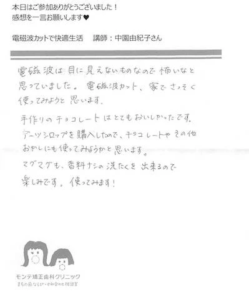 本日はご参加ありがとうございました！
感想を一言お願いします♥
電磁波カットで快適生活　講師：中園由紀子さん
電磁波は目に見えないものなので怖いなと
思っていました。電磁波カット、家でさっそく
使ってみようと思います。
手作りのチョコレートはとてもおいしかったです。
デーツシロップを購入したので、チョコレートやその他
おかしにも使ってみようかと思います。
マグマグも、香料ナシの洗たくを出来るので
楽しみです。使ってみます！
モンテ矯正歯科クリニック